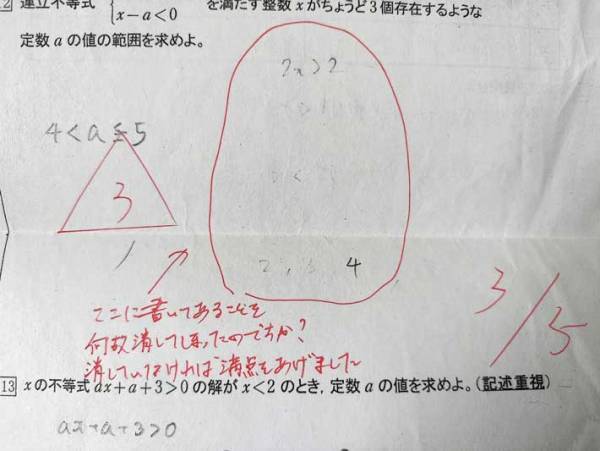 2 連立不等式 を満たす整数 x がちょうど3個存在するような
x-a<0
定数 a の値の範囲を求めよ。
2x>2
4<a≦5
3
2, 3 4
ここに書いてあることを
何故消してしまったのですか?
消していなければ満点をあげました
3/5
13 xの不等式 ax+a+3>0 の解が x<2 のとき, 定数 a の値を求めよ。(記述重視)
ax+a+3>0